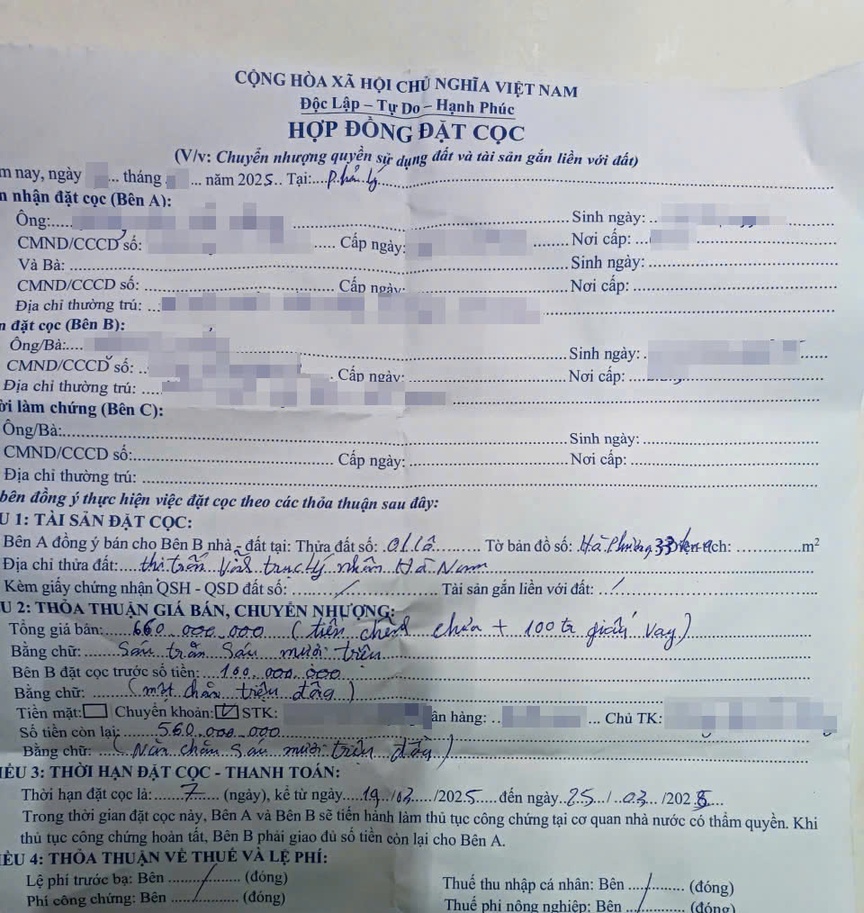 CỘNG HÒA XÃ HỘI CHỦ NGHĨA VIỆT NAM
Độc Lập – Tự Do – Hạnh Phúc
HỢP ĐỒNG ĐẶT CỌC
(V/v: Chuyển nhượng quyền sử dụng đất và tài sản gắn liền với đất)
m nay, ngày ... tháng ... năm 2025.. Tại:....Phủ Lý
n nhận đặt cọc (Bên A):
Ông:.... Sinh ngày: ..
CMND/CCCD số: .... Cấp ngày: ........ Nơi cấp: ...
Và Bà: Sinh ngày:
CMND/CCCD số: Cấp ngày: Nơi cấp:
Địa chỉ thường trú: ...
n đặt cọc (Bên B):
Ông/Bà:.... Sinh ngày: .
CMND/CCCD số: .. Cấp ngày: Nơi cấp:
Địa chỉ thường trú: ....
ời làm chứng (Bên C):
Ông/Bà: Sinh ngày:
CMND/CCCD số: Cấp ngày: Nơi cấp:
Địa chỉ thường trú:
bên đồng ý thực hiện việc đặt cọc theo các thỏa thuận sau đây:
U 1: TÀI SẢN ĐẶT CỌC:
Bên A đồng ý bán cho Bên B nhà - đất tại: Thửa đất số: 01 lô Tờ bản đồ số: tích: m²
Địa chỉ thửa đất: thị trấn Vĩnh trụ lý nhân Hà Nam
Kèm giấy chứng nhận QSH - QSD đất số: / Tài sản gắn liền với đất: /
U 2: THỎA THUẬN GIÁ BÁN, CHUYỂN NHƯỢNG:
Tổng giá bán: 660.000.000 (tiền chênh chưa + 100 tr giấy vay)
Bằng chữ: Sáu trăm Sáu mươi triệu
Bên B đặt cọc trước số tiền: 100.000.000
Bằng chữ: (một trăm triệu đồng)
Tiền mặt: Chuyển khoản: STK: ân hàng: .. ... Chủ TK:
Số tiền còn lại: 560.000.000
Bằng chữ: (Năm trăm Sáu mươi triệu đồng)
IỀU 3: THỜI HẠN ĐẶT CỌC - THANH TOÁN:
Thời hạn đặt cọc là: 7 (ngày), kể từ ngày 19/03/2025 đến ngày 25/03/2025
Trong thời gian đặt cọc này, Bên A và Bên B sẽ tiến hành làm thủ tục công chứng tại cơ quan nhà nước có thẩm quyền. Khi
thủ tục công chứng hoàn tất, Bên B phải giao đủ số tiền còn lại cho Bên A.
IỀU 4: THỎA THUẬN VỀ THUẾ VÀ LỆ PHÍ:
Lệ phí trước bạ: Bên / (đóng) Thuế thu nhập cá nhân: Bên / (đóng)
Phí công chứng: Bên / (đóng) Thuế phi nông nghiệp: Bên / (đóng)